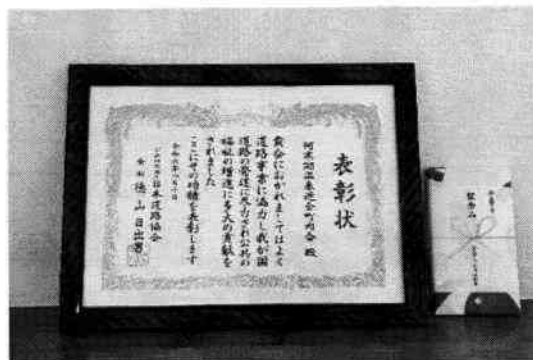 表彰状
阿寒湖温泉連合町内会 殿
貴会におかれましてはよく
道路事業に協力し我が国
道路の発達に尽力され公共の
福祉の増進に多大の貢献を
されました
ここにその功績を表彰します
令和六年八月十日
公益社団法人日本道路協会
会長 徳山日出男